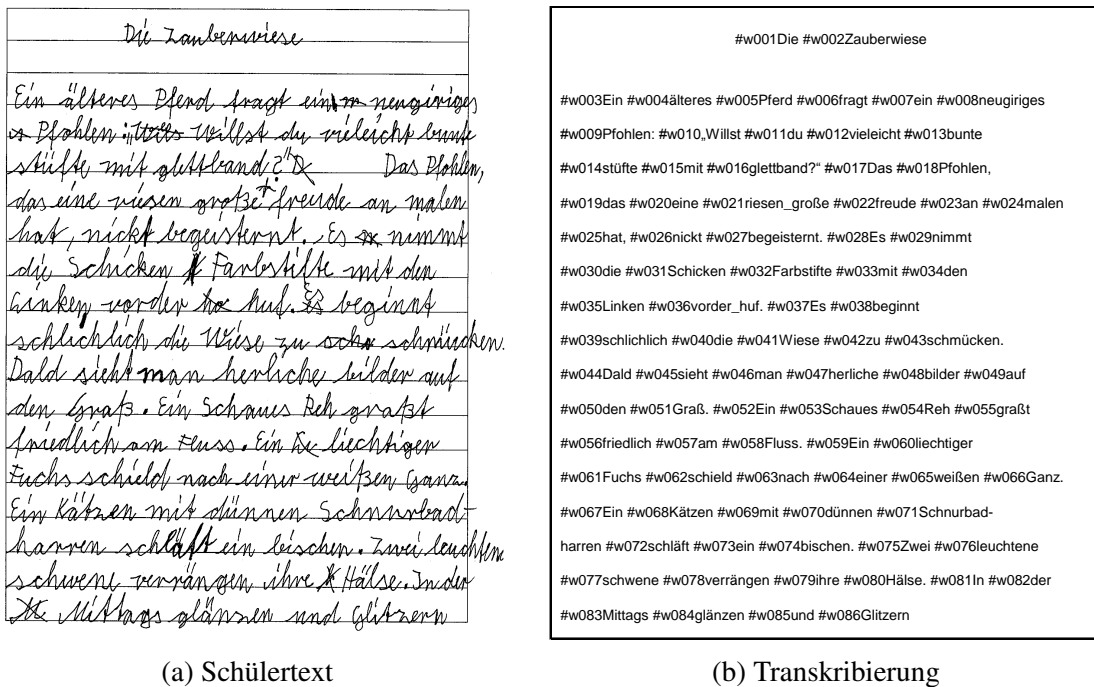 Die Zauberwiese
Ein älteres Pferd fragt ein neugiriges
Pfohlen: „Willst du vieleicht bunte
stüfte mit glettband?" Das Pfohlen,
das eine riesen große freude an malen
hat, nickt begeisternt. Es nimmt
die Schicken Farbstifte mit den
Linken vorder huf. Es beginnt
schlichlich die Wiese zu schmücken.
Dald sieht man herliche bilder auf
den Graß. Ein Schaues Reh graßt
friedlich am Fluss. Ein liechtigen
Fuchs schield nach einer weißen Ganz.
Ein Kätzen mit dünnen Schnurbad-
harren schläft ein bischen. Zwei leuchtene
schwene verrängen ihre Hälse. In der
Mittags glänzen und Glitzern
(a) Schülertext
#w001Die #w002Zauberwiese
#w003Ein #w004älteres #w005Pferd #w006fragt #w007ein #w008neugiriges
#w009Pfohlen: #w010„Willst #w011du #w012vieleicht #w013bunte
#w014stüfte #w015mit #w016glettband?“ #w017Das #w018Pfohlen,
#w019das #w020eine #w021riesen_große #w022freude #w023an #w024malen
#w025hat, #w026nickt #w027begeisternt. #w028Es #w029nimmt
#w030die #w031Schicken #w032Farbstifte #w033mit #w034den
#w035Linken #w036vorder_huf. #w037Es #w038beginnt
#w039schlichlich #w040die #w041Wiese #w042zu #w043schmücken.
#w044Dald #w045sieht #w046man #w047herliche #w048bilder #w049auf
#w050den #w051Graß. #w052Ein #w053Schaues #w054Reh #w055graßt
#w056friedlich #w057am #w058Fluss. #w059Ein #w060liechtiger
#w061Fuchs #w062schield #w063nach #w064einer #w065weißen #w066Ganz.
#w067Ein #w068Kätzen #w069mit #w070dünnen #w071Schnurbad-
harren #w072schläft #w073ein #w074bischen. #w075Zwei #w076leuchtene
#w077schwene #w078verrängen #w079ihre #w080Hälse. #w081In #w082der
#w083Mittags #w084glänzen #w085und #w086Glitzern
(b) Transkribierung